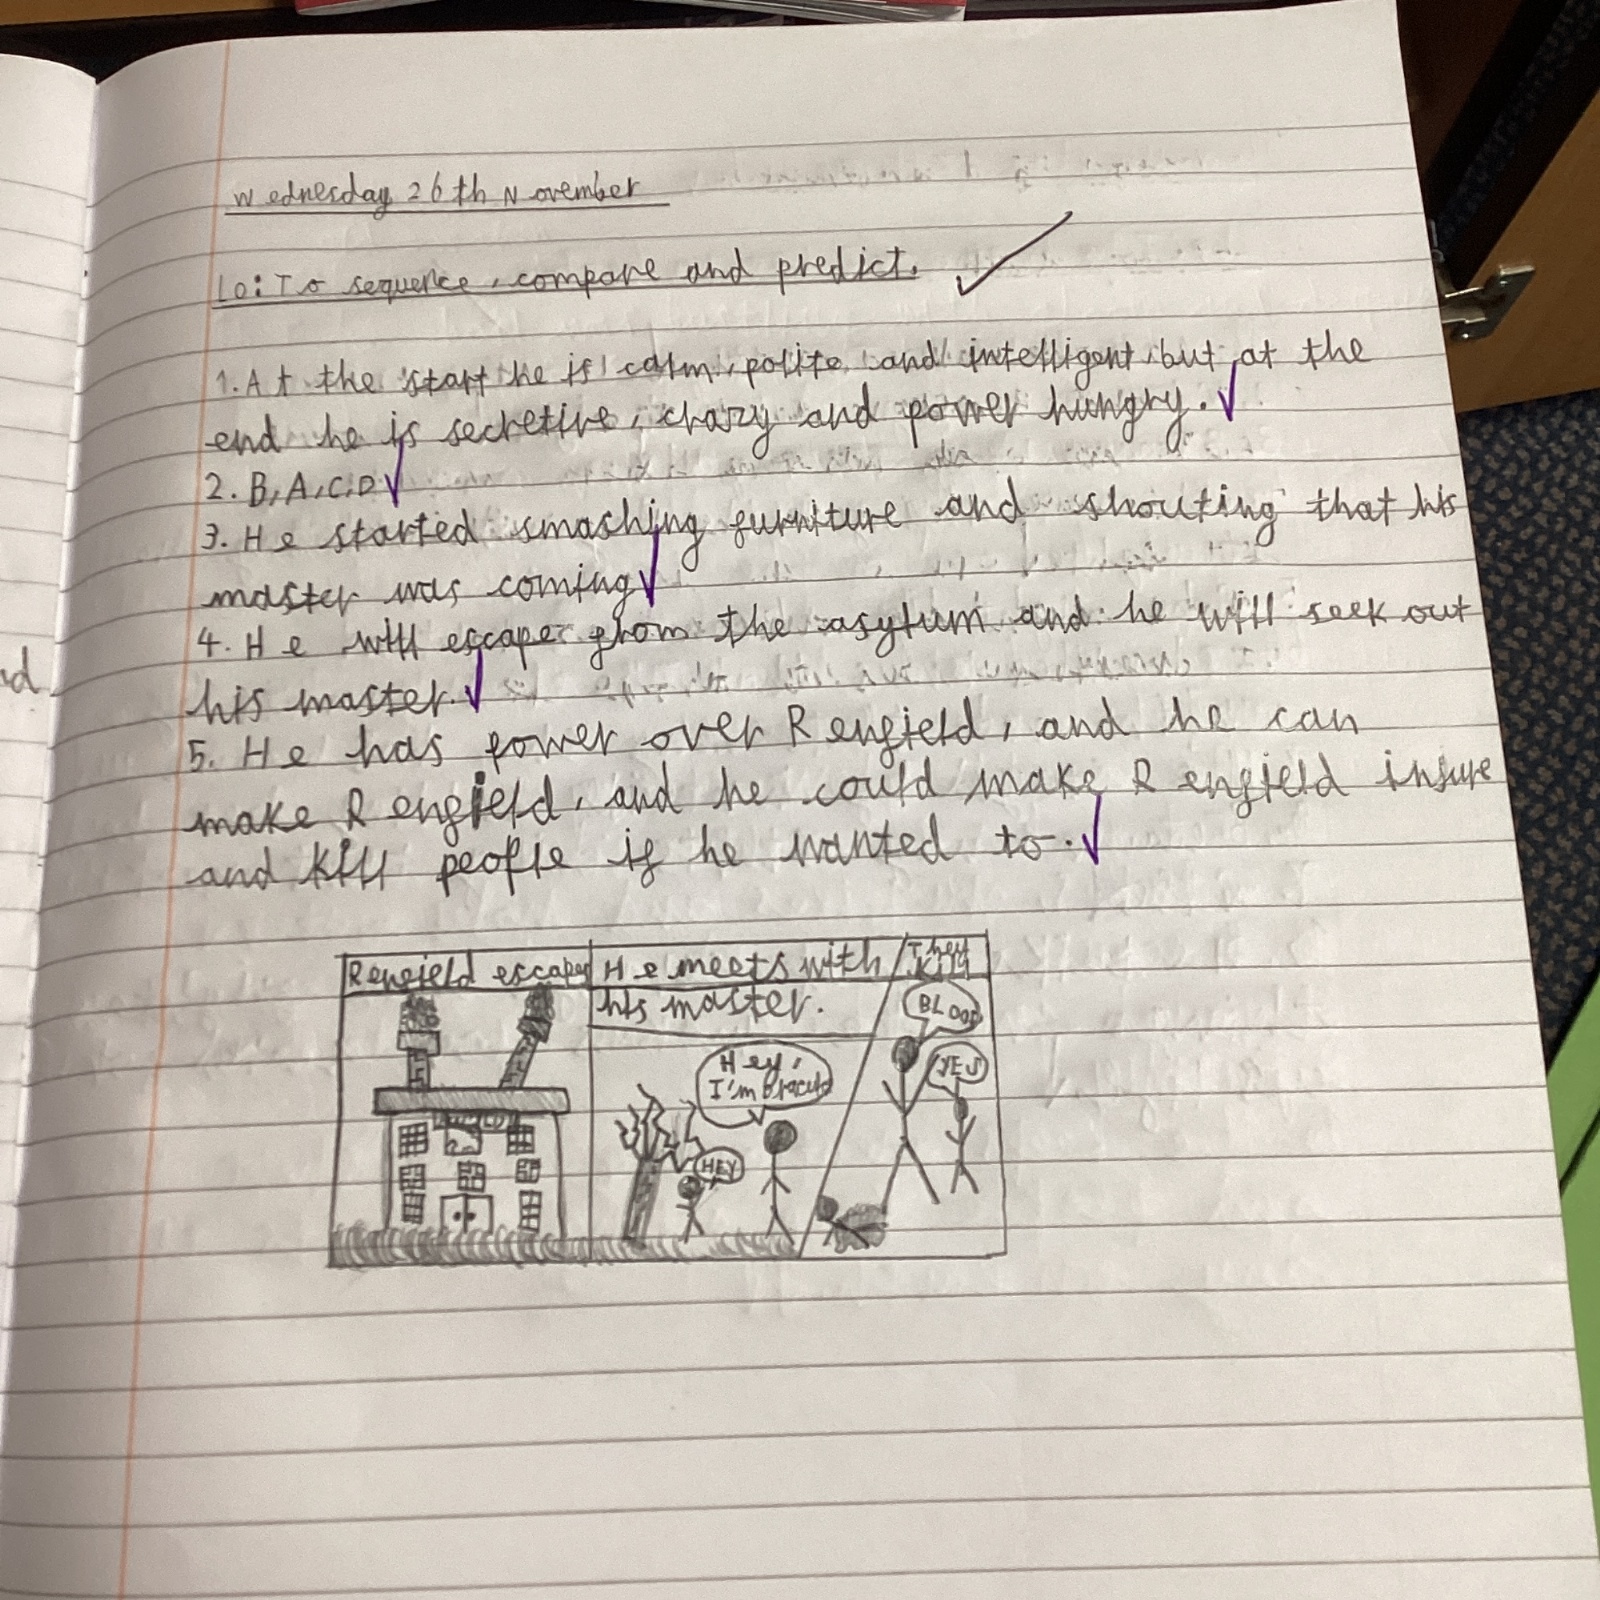 Wednesday 26th November
LO: To sequence, compare and predict.
1. At the start he is calm, polite and intelligent, but at the
end he is secretive, crazy and power hungry.
2. B, A, C, D
3. He started smashing furniture and shouting that his
master was coming
4. He will escape from the asylum and he will seek out
his master.
5. He has power over Renfield, and he can
make Renfield, and he could make Renfield insure
and kill people if he wanted to.
Renfield escapes
He meets with
his master.
They
kill
Hey,
I'm Dracula
HEY
BLOOD
YES